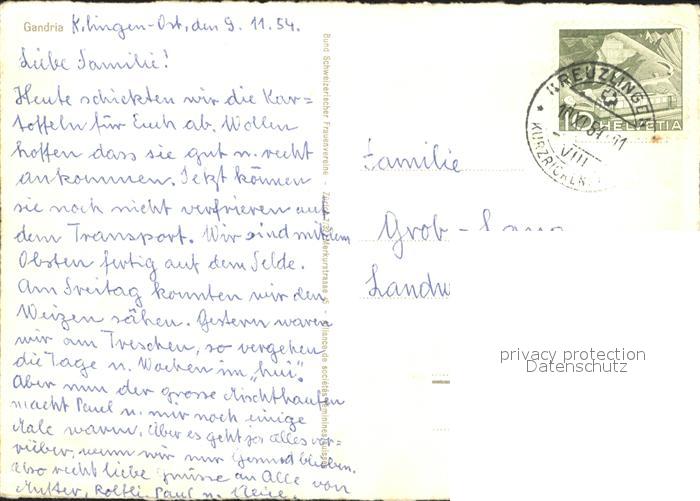 Gandria
K,lingen-Ost, den 9. 11. 54.
Liebe Familie!
Heute schickten wir die Kar=
toffeln für Euch ab. Wollen
hoffen dass sie gut u. recht
ankommen. Jetzt können
sie noch nicht verfrieren auf
dem Transport. Wir sind mit dem
Obsten fertig auf dem Felde.
Am Freitag konnten wir den
Weizen sähen. Gestern waren
wir am Treschen, so vergehen
die Tage u. Wochen im „hui".
Aber nun der grosse Mischthaufen
macht Paul u. mir noch einige
Male warm. Aber es geht ja alles vor=
rüber, wenn wir nur Gesund bleiben.
Also recht liebe Grüsse an Alle von
Mutter, Paul u.
Bund Schweizerischer Frauenvereine - Zürich 7/32 Merkurstrasse
Alliance de sociétés féminines suisses
KREUZLINGEN
VIII
HELVETIA
Familie
Grob -
Landw
privacy protection
Datenschutz